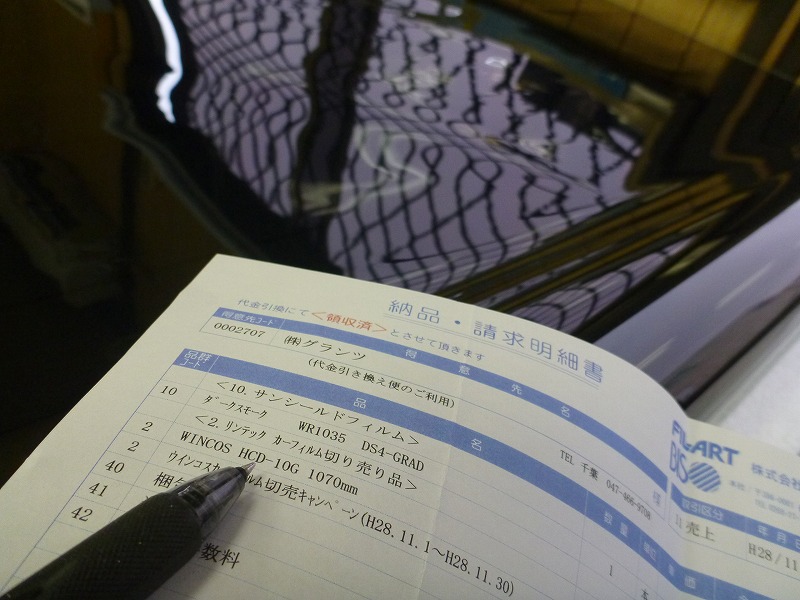 納品・請求明細書
代金引換にて<領収済>とさせて頂きます
得意先コード 得意先名
0002707 ㈱グランツ
(代金引き換え便のご利用)
TEL 千葉 047-466-9708 様
FILART
BISO 株式会社
品群コード 品名 数量 単位 単価
取引区分 年月日
売上 H28/11
10 <10.サンシールドフィルム>
ダークスモーク WR1035 DS4-GRAD
2 <2.リンテック カーフィルム切り売り品>
2 WINCOS HCD-10G 1070mm
40 ウインコスカーフィルム切売キャンペーン(H28.11.1～H28.11.30)
41 梱
42
数料
1 本